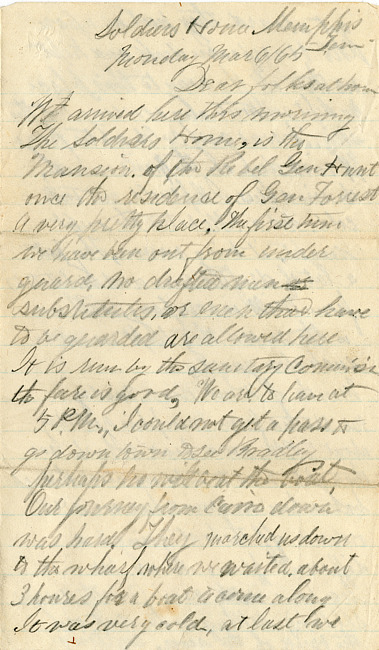 Soldiers Home Memphis
Tenn
Monday Mar 6/65
Dear folks at home
We arrived here this morning
The Soldiers Home, is the
Mansion of the Rebel Gen Hunt
once the residence of Gen Forrest
a very pretty place. The first time
we have been out from under
guard, no drafted men
substitutes, or men that have
to be guarded are allowed here
It is run by the sanitary Commission
the fare is good, We are to leave at
5 P.M., I could not get a pass to
go down town to see Bradley
perhaps he will be at the boat.
Our journey from Cairo down
was hard. They marched us down
to the wharf where we waited about
3 houres for a boat to come along
It was very cold, at last we